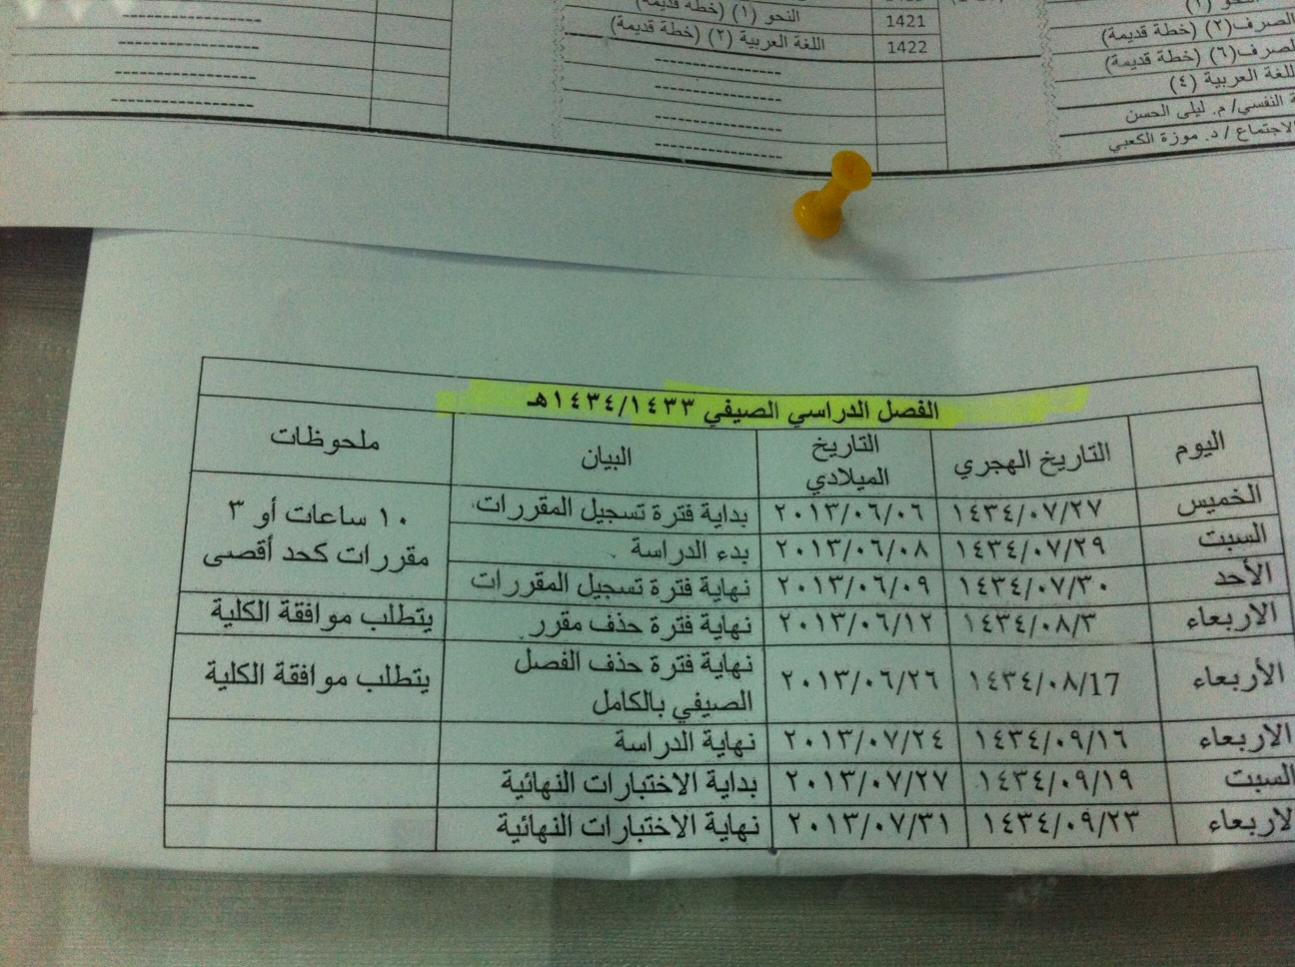 النحو (١) (خطة قديمة)
1421
اللغة العربية (٢) (خطة قديمة)
1422
الصرف(٢) (خطة قديمة)
الصرف(٦) (خطة قديمة)
اللغة العربية (٤)
النفسي/ م. ليلى الحسن
الاجتماع / د. موزة الكعبي
الفصل الدراسي الصيفي ١٤٣٤/١٤٣٣هـ
اليوم التاريخ الهجري التاريخ الميلادي البيان ملحوظات
الخميس ١٤٣٤/٠٧/٢٧ ٢٠١٣/٠٦/٠٦ بداية فترة تسجيل المقررات ١٠ ساعات أو ٣
السبت ١٤٣٤/٠٧/٢٩ ٢٠١٣/٠٦/٠٨ بدء الدراسة مقررات كحد أقصى
الأحد ١٤٣٤/٠٧/٣٠ ٢٠١٣/٠٦/٠٩ نهاية فترة تسجيل المقررات
الاربعاء ١٤٣٤/٠٨/٣ ٢٠١٣/٠٦/١٢ نهاية فترة حذف مقرر يتطلب موافقة الكلية
الأربعاء ١٤٣٤/٠٨/17 ٢٠١٣/٠٦/٢٦ نهاية فترة حذف الفصل يتطلب موافقة الكلية
الصيفي بالكامل
الاربعاء ١٤٣٤/٠٩/١٦ ٢٠١٣/٠٧/٢٤ نهاية الدراسة
السبت ١٤٣٤/٠٩/١٩ ٢٠١٣/٠٧/٢٧ بداية الاختبارات النهائية
لاربعاء ١٤٣٤/٠٩/٢٣ ٢٠١٣/٠٧/٣١ نهاية الاختبارات النهائية